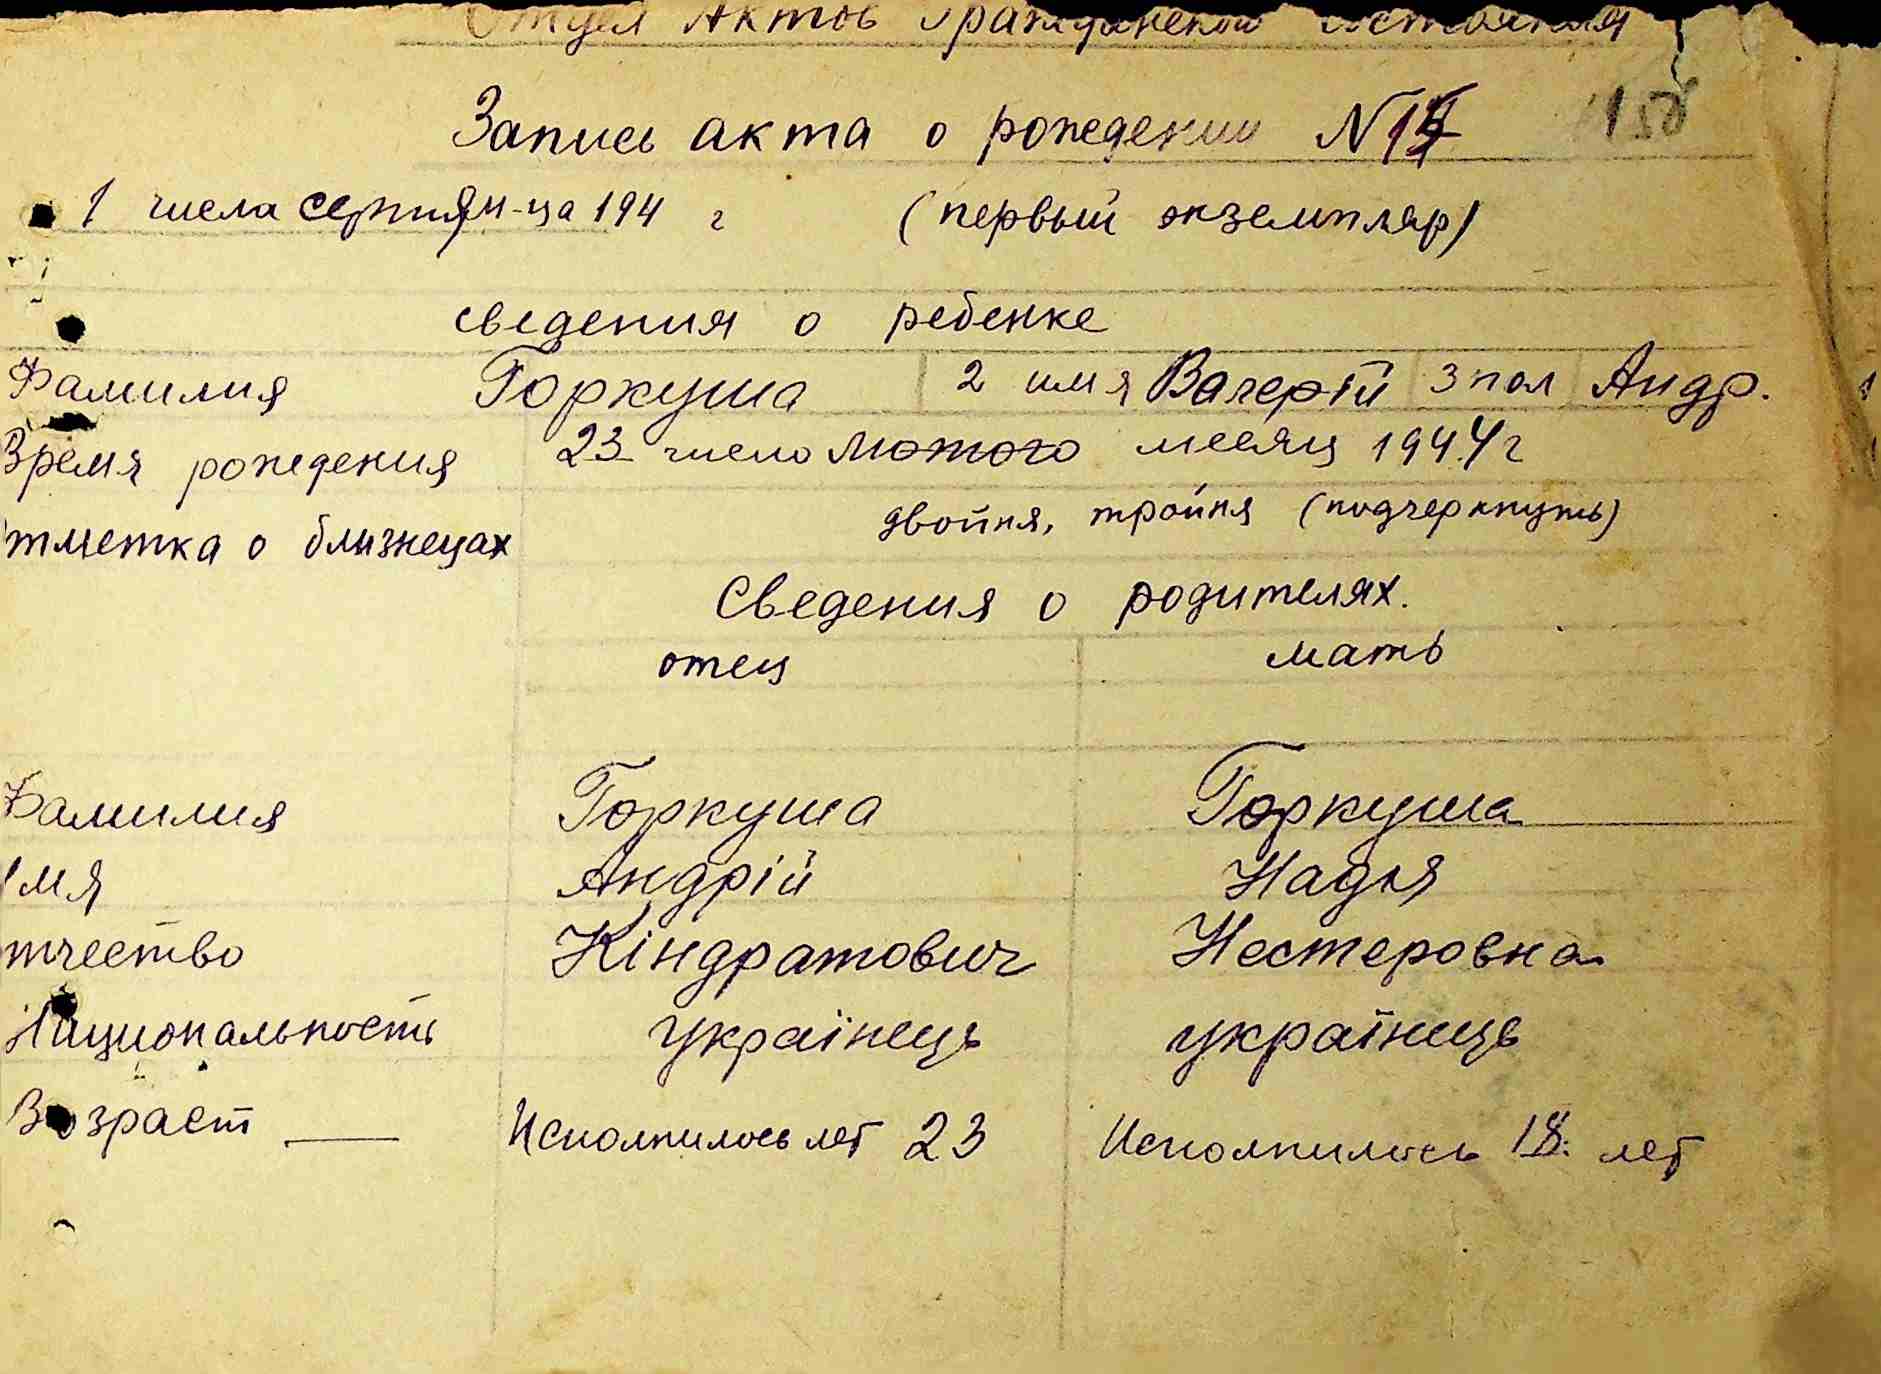 Отдел Актов Гражданского состояния
Запись акта о рождении N
1 числа серпня м-ца 194 г (первый экземпляр)
сведения о ребенке
Фамилия Горкуша 2 имя Валерій 3 пол Андр.
Время рождения 23 число лютого месяц 1944 г
тметка о близнецах двойня, тройня (подчеркнуть)
Сведения о родителях.
отец мать
Фамилия Горкуша Горкуша
Имя Андрій Надія
тчество Кіндратович Нестеровна
Национальность Українець українець
Возраст Исполнилось лет 23 Исполнилось 18 лет